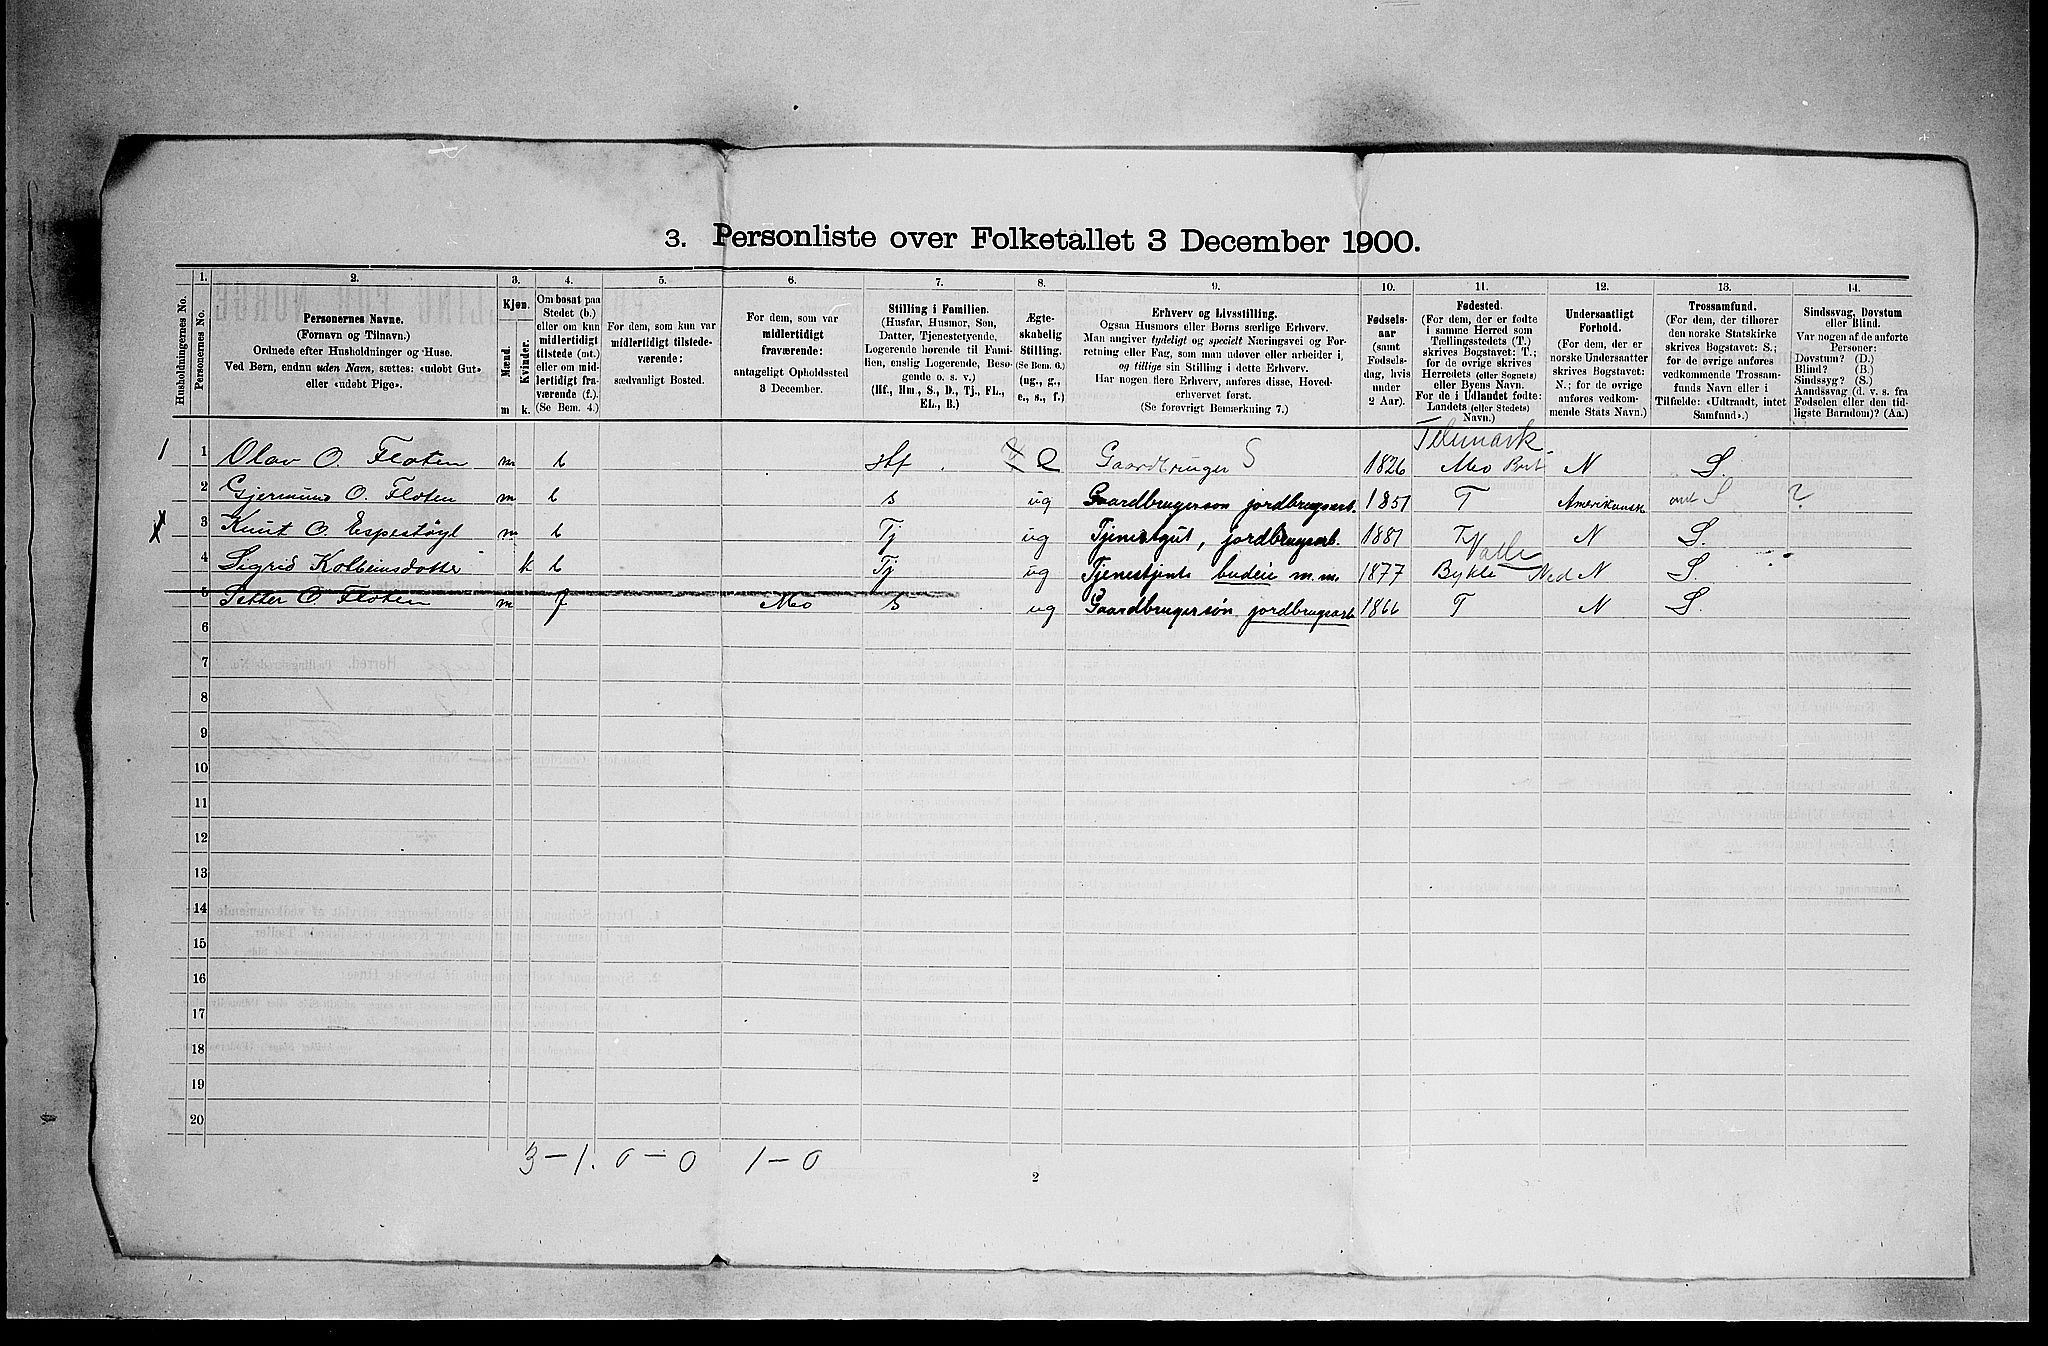 3. Personliste over Folketallet 3 December 1900.
1. 2. 3. 4. 5. 6. 7. 8. 9. 10. 11. 12. 13. 14.
Husholdningernes No.
Personernes No.
Personernes Navne.
(Fornavn og Tilnavn.)
Ordnede efter Husholdninger og Huse.
Ved Børn, endnu uden Navn, sættes: «udøbt Gut»
eller «udøbt Pige».
Kjøn.
Mænd.
Kvinder.
m k.
Om bosat paa
Stedet (b.)
eller om kun
midlertidigt
tilstede (mt.)
eller om mid-
lertidigt fra-
værende (f.).
(Se Bem. 4.)
For dem, som kun var
midlertidigt tilstede-
værende:
sædvanligt Bosted.
For dem, som var
midlertidigt
fraværende:
antageligt Opholdssted
3 December.
Stilling i Familien.
(Husfar, Husmor, Søn,
Datter, Tjenestetyende,
Logerende hørende til Fami-
lien, enslig Logerende, Besø-
gende o. s. v.)
(Hf., Hm., S., D., Tj., FL.,
EL., B.)
Ægte-
skabelig
Stilling.
(Se Bem. 6.)
(ug., g.,
e., s., f.)
Erhverv og Livsstilling.
Ogsaa Husmors eller Børns særlige Erhverv.
Man angiver tydeligt og specielt Næringsvei og For-
retning eller Fag, som man udøver eller arbeider i,
og tillige sin Stilling i dette Erhverv.
Har nogen flere Erhverv, anføres disse, Hoved-
erhvervet først.
(Se forøvrigt Bemærkning 7.)
Fødsels-
aar
(samt
Fødsels-
dag, hvis
under
2 Aar).
Fødested.
(For dem, der er fødte
i samme Herred som
Tællingsstedets (T.)
skrives Bogstavet: T.;
for de øvrige skrives
Herredets (eller Sognets)
eller Byens Navn.
For de i Udlandet fødte:
Landets (eller Stedets)
Navn.)
Undersaatligt
Forhold.
(For dem, der er
norske Undersaatter
skrives Bogstavet:
N.; for de øvrige
anføres vedkom-
mende Stats Navn.)
Trossamfund.
(For dem, der tilhører
den norske Statskirke
skrives Bogstavet: S.;
for de øvrige anføres
vedkommende Trossam-
funds Navn eller i
Tilfælde: «Udtraadt, intet
Samfund».)
Sindssvag, Døvstum
eller Blind.
Var nogen af de anførte
Personer:
Døvstum? (D.)
Blind? (B.)
Sindssyg? (S.)
Aandssvag (d. v. s. fra
Fødselen eller den tid-
ligste Barndom)? (Aa.)
Telemark
1 1 Olav O. Floten m b Hf. Gaardbruger S 1826 Mo N S.
2 Gjermund O. Floten m b s ug Gaardbrugerson jordbrugsarb. 1851 T Amerikansk S ?
3 Knut O. Espestøyl m b Tj ug Tjenestgut, jordbrugsarb. 1881 T N S.
Valle
4 Sigrid Kolbeinsdotter k b Tj ug Tjenestjente budeie m.m. 1877 Bykle N S.
5 Petter O. Floten m f Mo s ug Gaardbrugersøn jordbrugsarb 1866 T N S.
6
7
8
9
10
11
12
13
14
15
16
17
18
19
20
3 – 1. 0 – 0 1 – 0
2